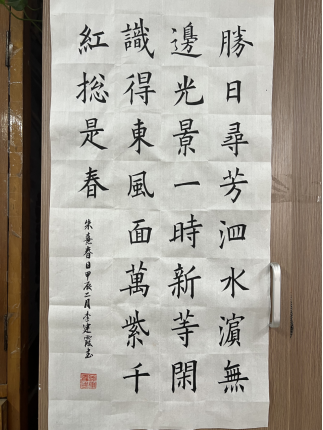 勝日尋芳泗水濵無
邊光景一時新等閑
識得東風面萬紫千
紅捴是春
朱熹春日甲辰二月李建霞書